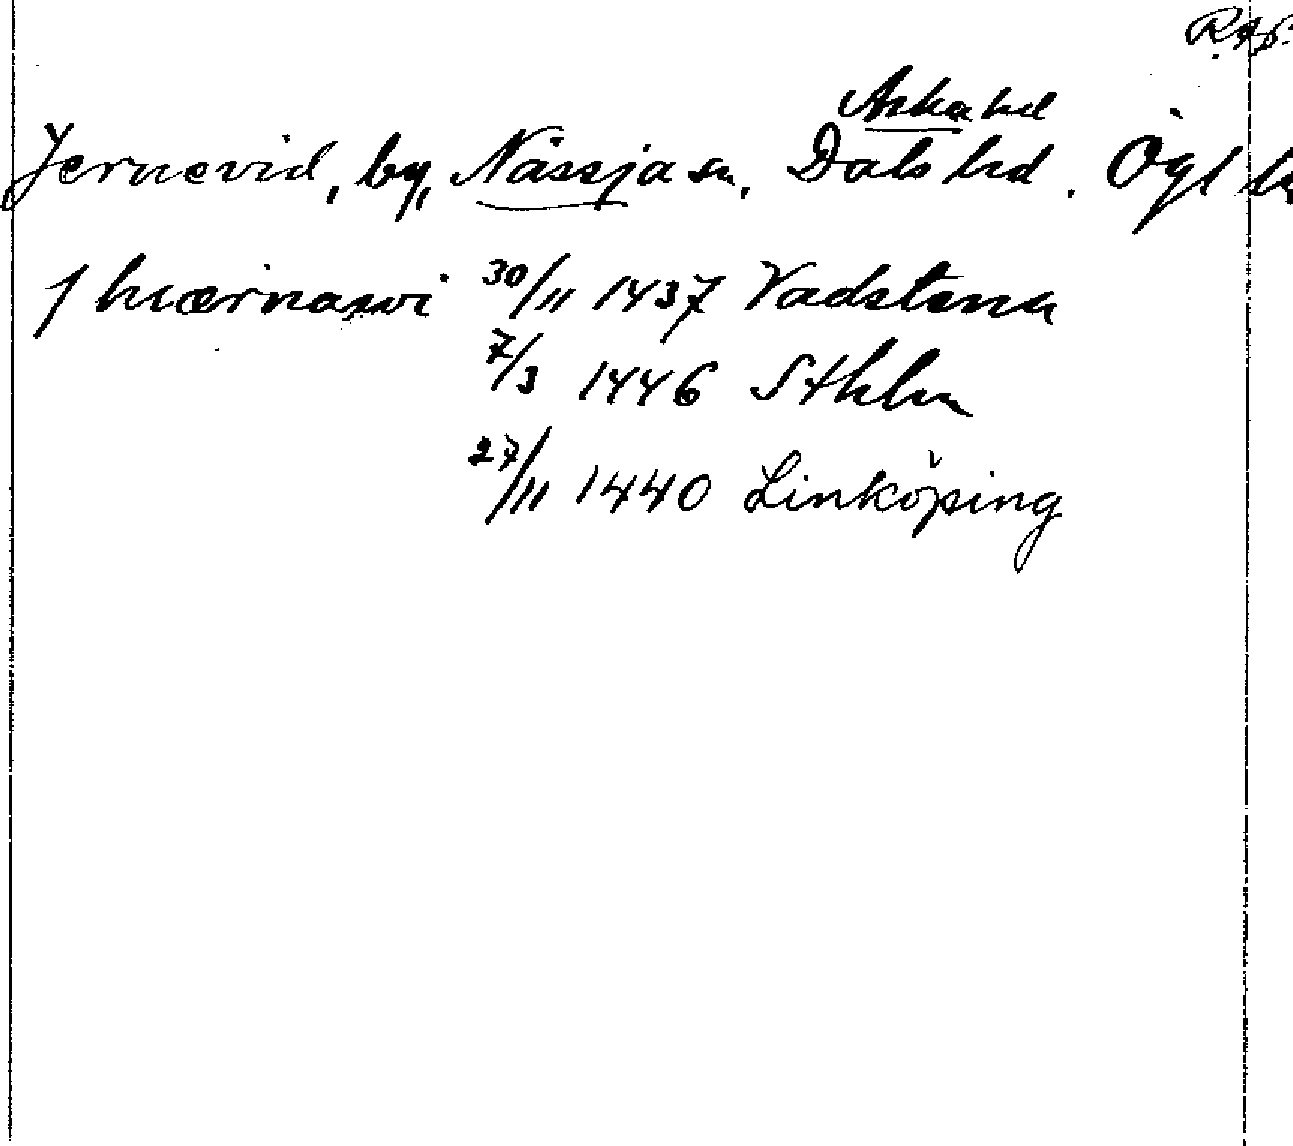 R.Ap.
Aska hd
Jernevid, by, Nässja sn, Dals hd. Ögl
J hiærnawi 30/11 1437 Vadstena
7/3 1446 Sthlm
27/11 1440 Linköping